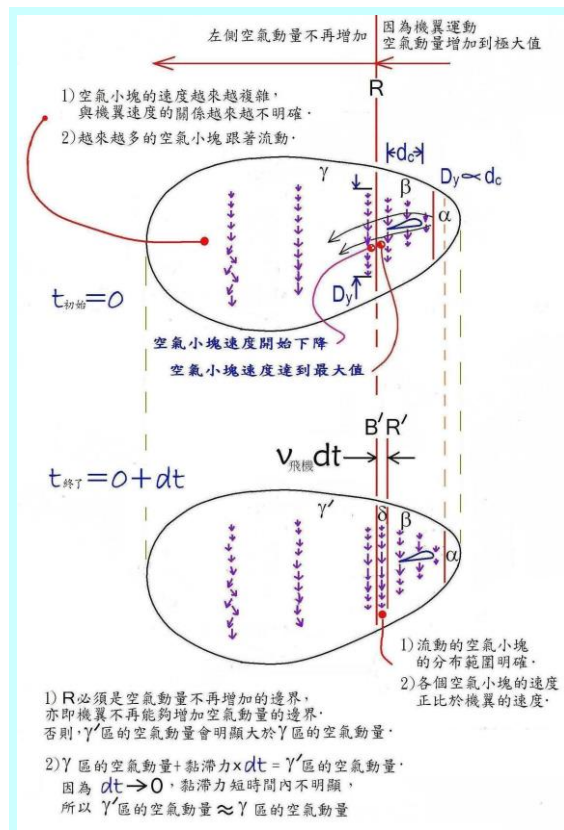 左側空氣動量不再增加
因為機翼運動
空氣動量增加到極大值
R
1)空氣小塊的速度越來越複雜，
與機翼速度的關係越來越不明確．
2)越來越多的空氣小塊跟著流動．
dc
γ
β
Dy∝dc
α
Dy
t初始=0
空氣小塊速度開始下降
空氣小塊速度達到最大值
B′ R′
ν飛機dt
t終了=0+dt
γ′
δ
β
α
1)流動的空氣小塊
的分布範圍明確．
2)各個空氣小塊的速度
正比於機翼的速度．
1)R必須是空氣動量不再增加的邊界，
亦即機翼不再能夠增加空氣動量的邊界．
否則，γ′區的空氣動量會明顯大於γ區的空氣動量．
2)γ區的空氣動量+黏滯力×dt=γ′區的空氣動量．
因為 dt→0，黏滯力短時間內不明顯，
所以 γ′區的空氣動量≈γ區的空氣動量